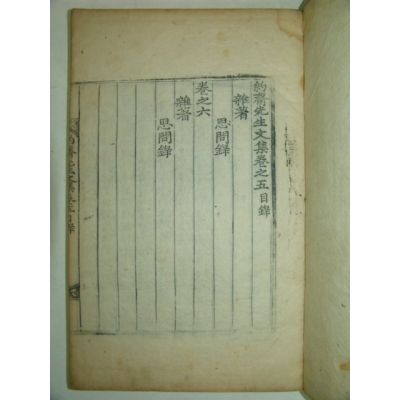 約齋先生文集卷之五目錄
雜著
思問錄
卷之六
雜著
思問錄